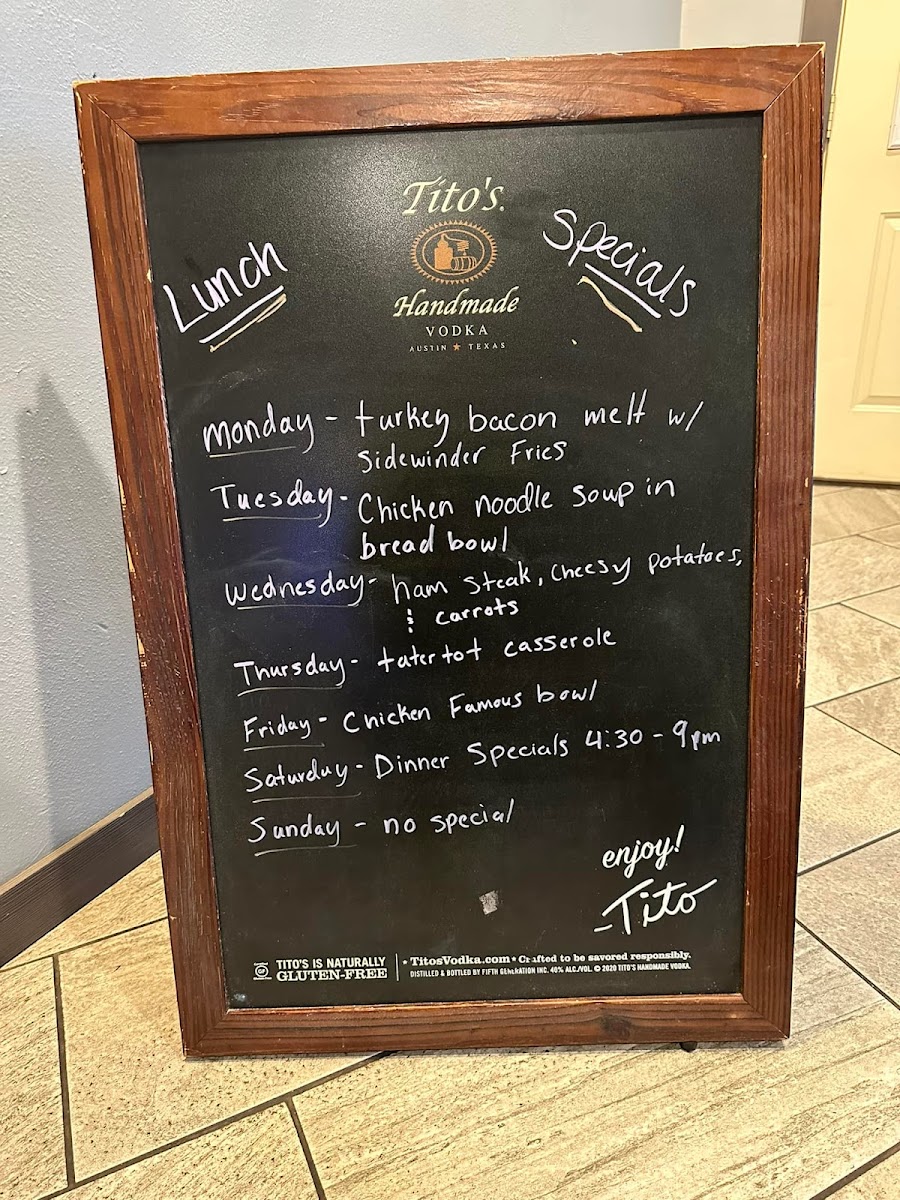 Tito's
Handmade
VODKA
AUSTIN ★ TEXAS
Lunch Specials
Monday - turkey bacon melt w/
Sidewinder Fries
Tuesday - Chicken noodle soup in
bread bowl
Wednesday - ham steak, cheesy potatoes,
& carrots
Thursday - tatertot casserole
Friday - Chicken Famous bowl
Saturday - Dinner Specials 4:30 - 9pm
Sunday - no special
enjoy!
-Tito
TITO'S IS NATURALLY
GLUTEN-FREE
• TitosVodka.com • Crafted to be savored responsibly.
DISTILLED & BOTTLED BY FIFTH GENERATION INC. 40% ALC./VOL. © 2020 TITO'S HANDMADE VODKA.